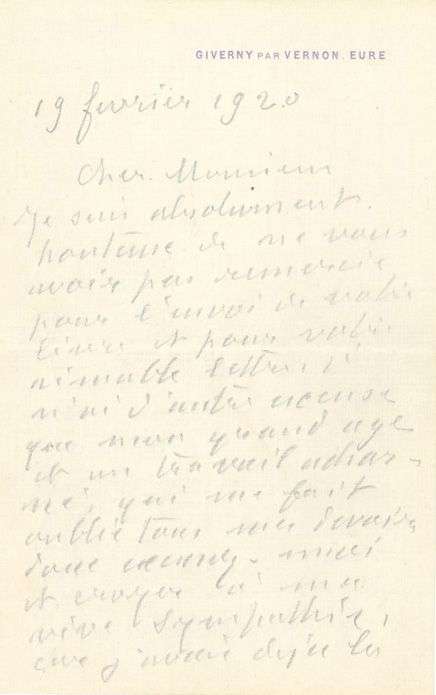 GIVERNY PAR VERNON. EURE
19 fevrier 1920
Cher Monsieur
Je suis absolument
honteux de ne vous
avoir pas remercié
pour l'envoi de votre
livre et pour votre
aimable lettre, j'
n'ai d'autre excuse
que mon grand age
et un travail achar-
né, qui me fait
oublié tous mes devoirs
donc excusez-moi
et croyez à ma
vive sympathie,
car j'avais déjà lu